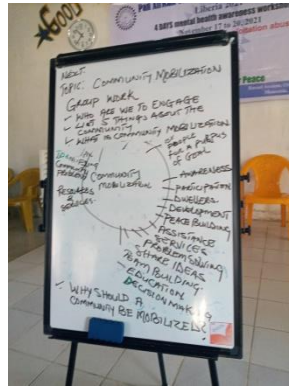 GOOD
PAN AFR
Liberia 202
4 DAYS mental health awareness worksh
vember 17 to 20, 2021
Peace
NEXT
TOPIC: COMMUNITY MOBILIZATION
GROUP WORK
✓ WHO ARE WE TO ENGAGE
✓ LIST 5 THINGS ABOUT THE
COMMUNITY
✓ WHAT IS COMMUNITY MOBILIZATION
COMMUNITY
MOBILIZATION
COMMUNITY
PROBLEM
RESOURCES &
SERVICES
FOR A
OF GOAL
AWARENESS
PARTICIPATION
DWELLERS
DEVELOPMENT
PEACE BUILDING
ASSISTANCE
SERVICES
PROBLEM SOLVING
SHARE IDEAS
TEAM BUILDING
EDUCATION
DECISION MAKING
✓ WHY SHOULD A
COMMUNITY BE MOBILIZED?